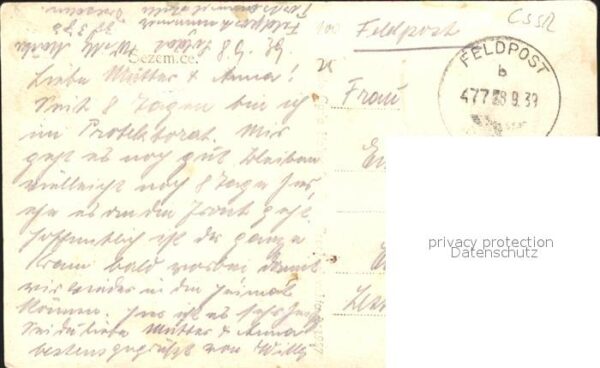 Feldpost
CSSR
FELDPOST
b
477 28.9.39
Sezemice
Liebe Mutter & Anna!
Seit 8 Tagen bin ich
im Protektorat. Mir
geht es noch gut bleiben
vielleicht noch 8 Tage hier,
ehe es an die Front geht.
Hoffentlich ist der ganze
Kram bald vorbei damit
wir wieder in die Heimat
können. Hier ist es sehr
Seid liebe Mutter & Anna
bestens gegrüßt von Willy
Frau
privacy protection
Datenschutz